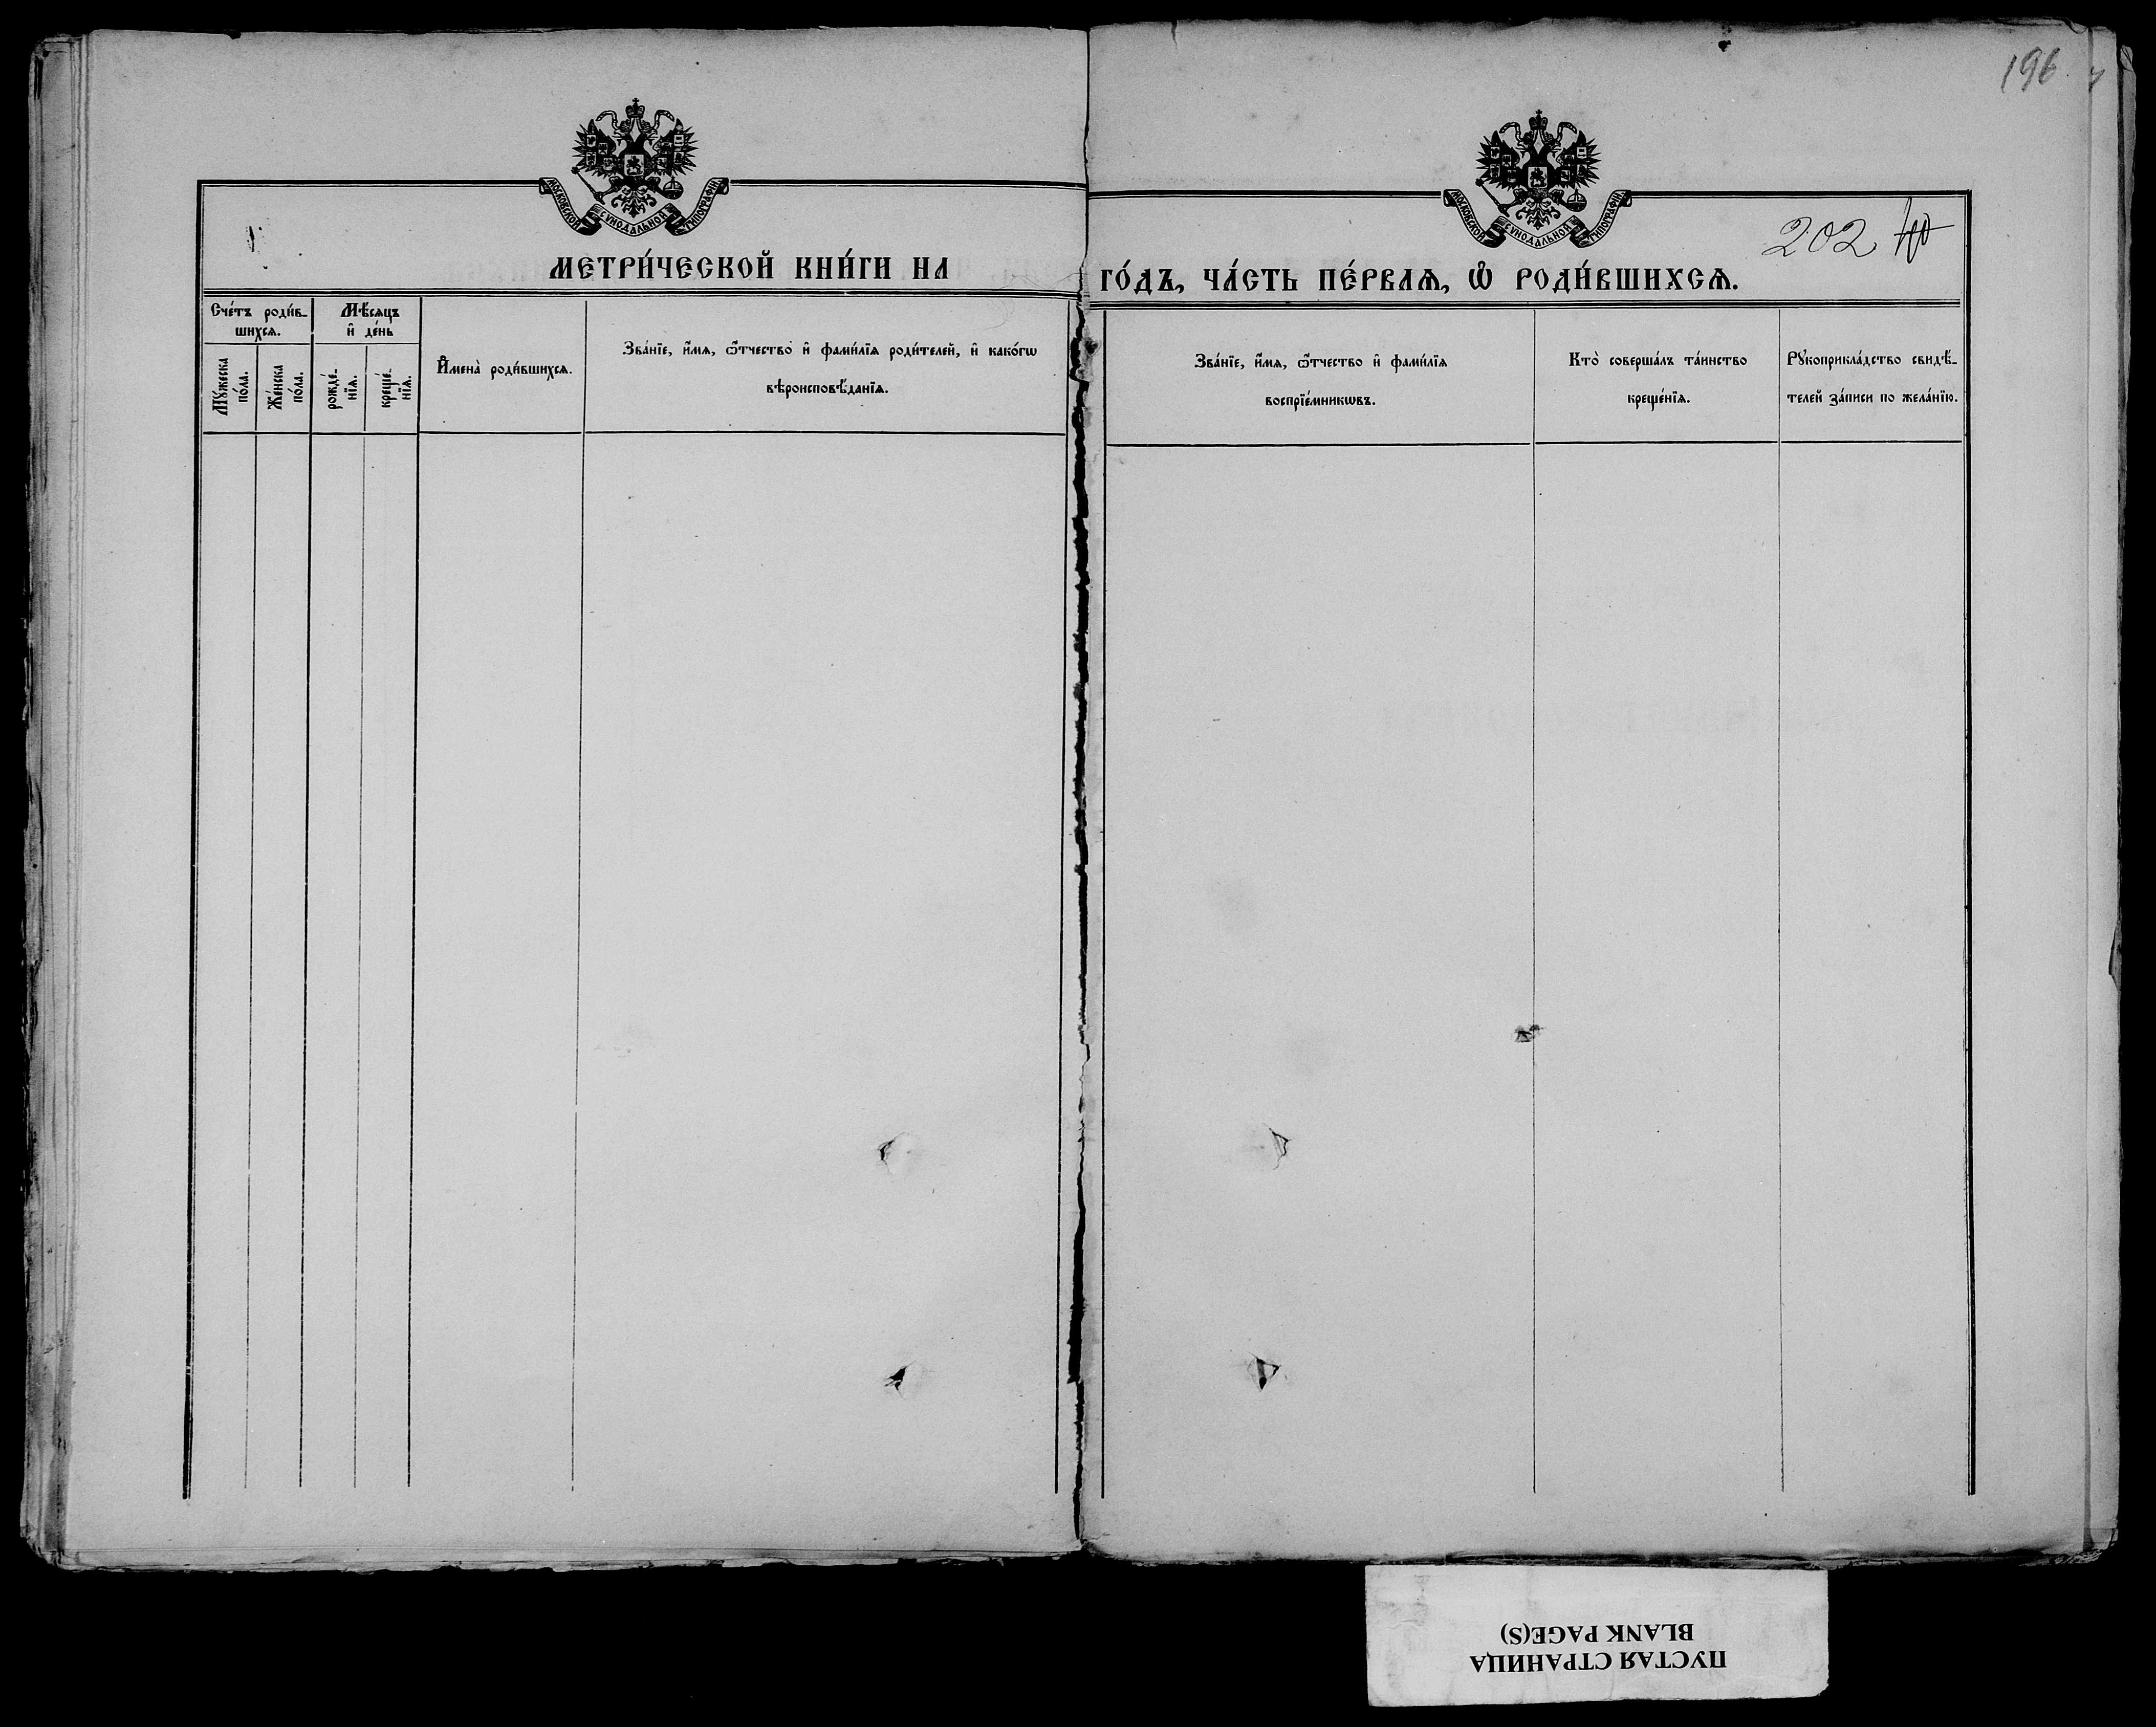 196
МОСКОВСКОЙ СѴНОДАЛЬНОЙ ТИПОГРАФІИ.
МОСКОВСКОЙ СѴНОДАЛЬНОЙ ТИПОГРАФІИ.
202
МЕТРИ́ЧЕСКОЙ КНИ́ГИ НА ГО́ДЪ, ЧА́СТЬ ПЕ́РВАѦ, Ѽ РОДИ́ВШИХСѦ.
Сче́тъ роди́в-
шихсѧ.
Мꙋ́жеска
по́ла.
Же́нска
по́ла.
Мѣ́сѧцъ
и҆ де́нь
рожде́-
нїѧ.
креще́-
нїѧ.
И҆мена̀ роди́вшихсѧ.
Зва́нїе, и҆́мѧ, ѻ҆́тчество и҆ фами́лїѧ роди́телей, и҆ како́гѡ
вѣроисповѣ́данїѧ.
Зва́нїе, и҆́мѧ, ѻ҆́тчество и҆ фами́лїѧ
воспрїе́мникѡвъ.
Кто̀ соверша́лъ та́инство
креще́нїѧ.
Рꙋкоприкла́дство свидѣ́-
телей за́писи по жела́нїю.
ПУСТАЯ СТРАНИЦА
BLANK PAGE(S)